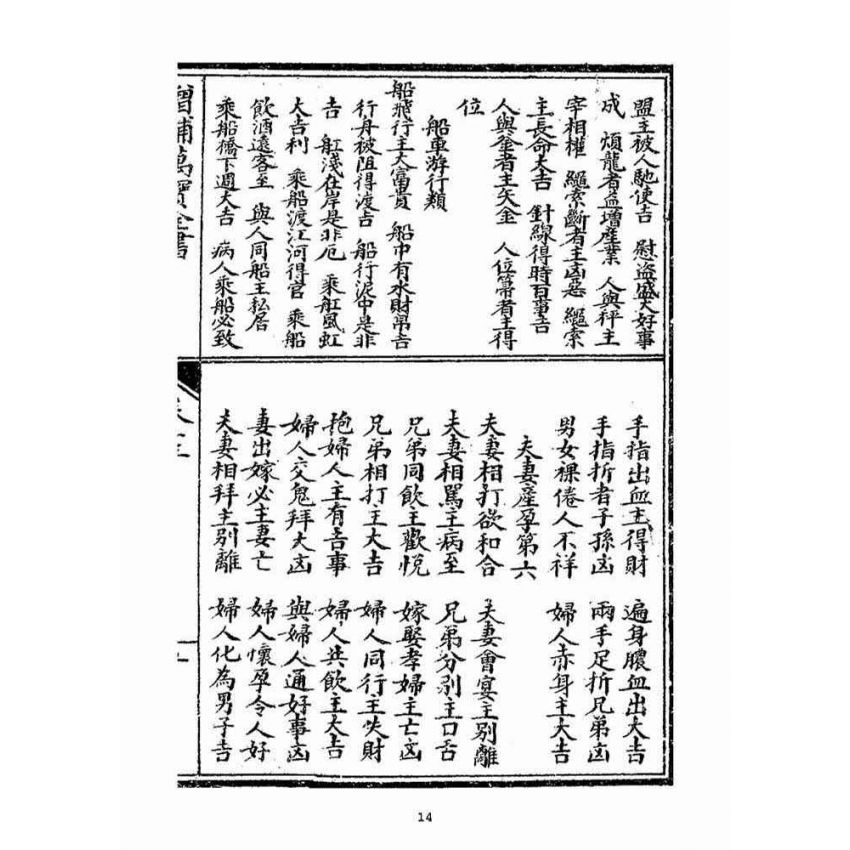 盟主被人馳使吉　慰盗盛大好事
成　煩龍者益增產業　人與秤主
宰相權　繩索斷者主凶惡　繩索
主長命大吉　針線得時百事吉
人與金者主矢金　人位幕者主得
位
船車游行類
船飛行主大富貴　船中有水財帛吉
行舟被阻得渡吉　船行泥中是非
吉　舡淺在岸是非厄　乘舡風虹
大吉利　乘船渡江河得官　乘船
飲酒遠客至　與人同船主私居
乘船橋下週大吉　病人乘船必致
手指出血主得財　遍身膿血出大吉
手指折者子孫凶　兩手足折兄弟凶
男女裸倦人不祥　婦人赤身主大吉
夫妻產孕第六
夫妻相打欲和合　夫妻會宴主別離
夫妻相罵主病至　兄弟分別主口舌
兄弟同飲主歡悅　嫁娶孝婦主亡凶
兄弟相打主大吉　婦人同行主失財
抱婦人主有吉事　婦人共飲主大吉
婦人交鬼拜大凶　與婦人通好事凶
妻出嫁必主妻亡　婦人懷孕令人好
夫妻相拜主別離　婦人化為男子吉
增補萬寶全書
14